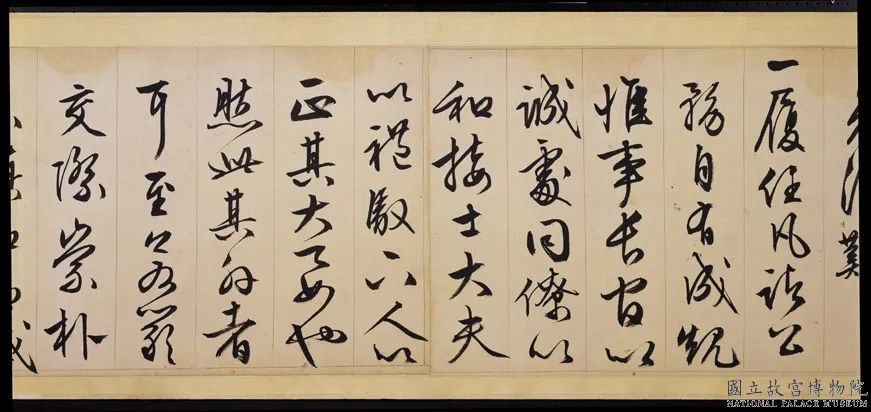 一履任凡諸公
務自有成規
惟事長官以
誠處同僚以
和接士大夫
以禮馭下人以
正其大要也
然此其外者
耳至
交際崇朴
國立故宮博物院
NATIONAL PALACE MUSEUM